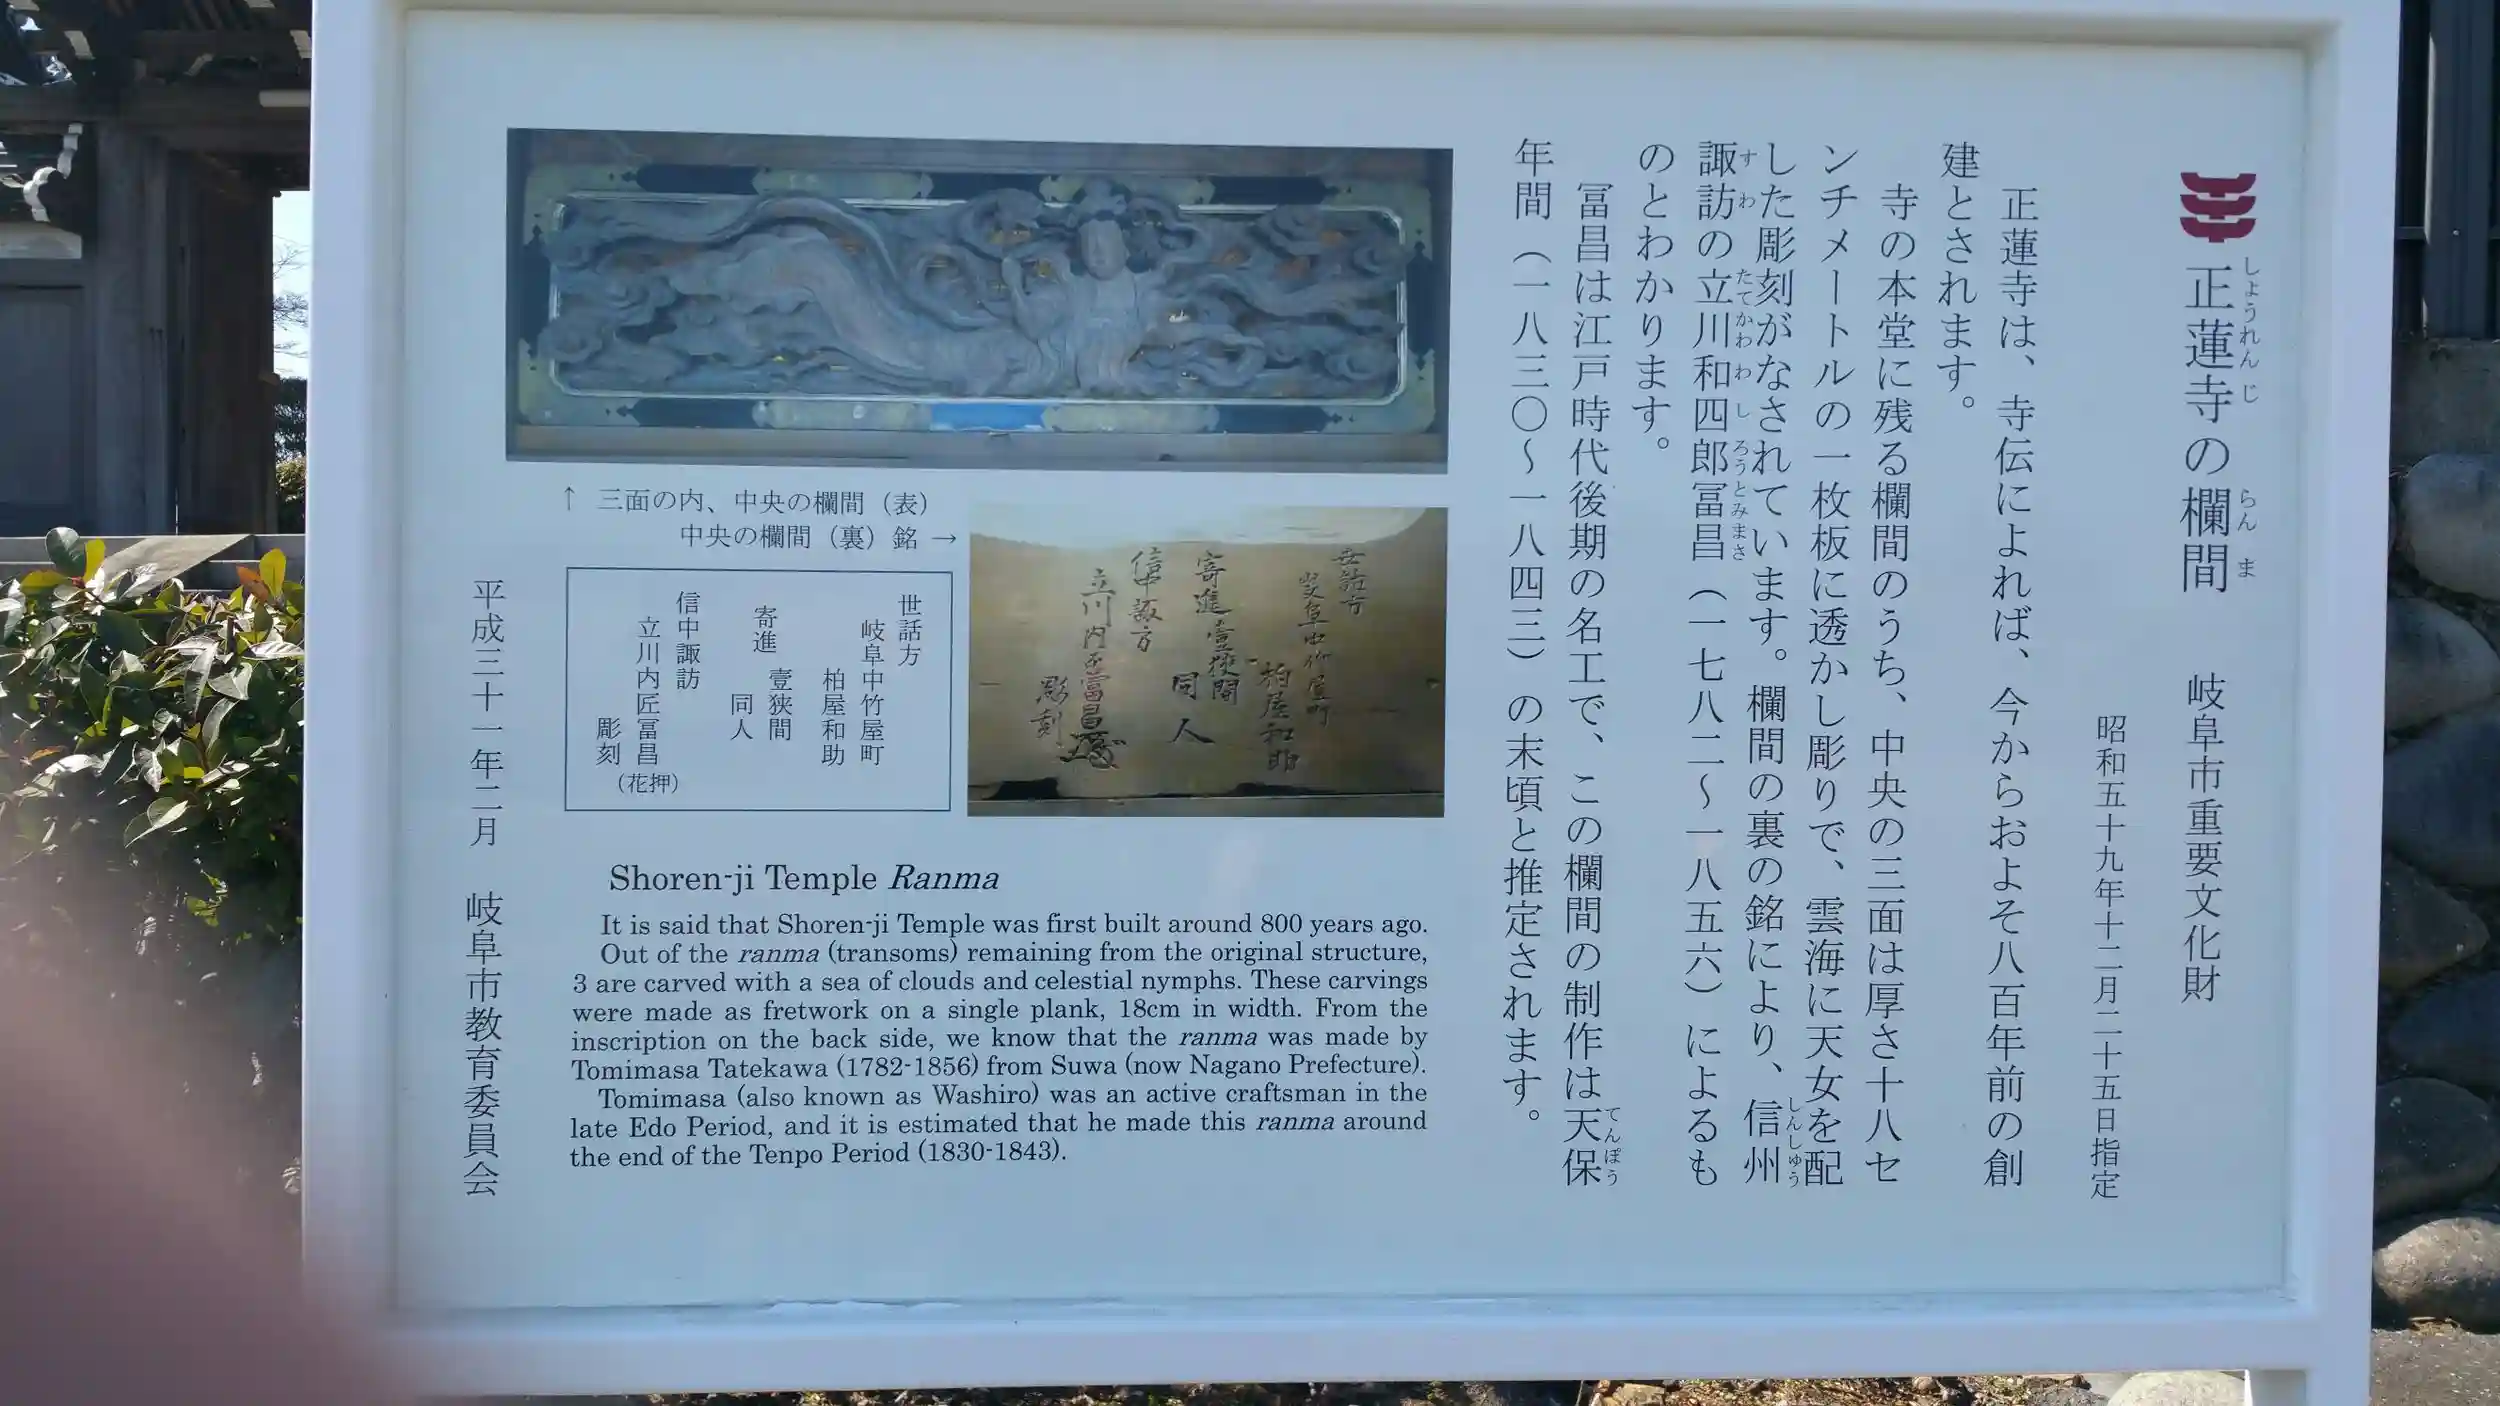 正蓮寺の欄間 岐阜市重要文化財
しょうれんじ らんま
昭和五十九年十二月二十五日指定
正蓮寺は、寺伝によれば、今からおよそ八百年前の創
建とされます。
寺の本堂に残る欄間のうち、中央の三面は厚さ十八セ
ンチメートルの一枚板に透かし彫りで、雲海に天女を配
した彫刻がなされています。欄間の裏の銘により、信州
しんしゅう
諏訪の立川和四郎冨昌（一七八二～一八五六）によるも
すわ たてかわ わ し ろうとみまさ
のとわかります。
冨昌は江戸時代後期の名工で、この欄間の制作は天保
てんぽう
年間（一八三〇～一八四三）の末頃と推定されます。
↑ 三面の内、中央の欄間（表）
中央の欄間（裏）銘 →
世話方
岐阜中竹屋町
柏屋和助
寄進 壹狭間
同人
信中諏訪
立川内匠冨昌（花押）
彫刻
世話方
岐阜中竹屋町
柏屋和助
寄進 壹狭間
同人
信中諏方
立川内匠冨昌
彫刻
Shoren-ji Temple Ranma
It is said that Shoren-ji Temple was first built around 800 years ago.
Out of the ranma (transoms) remaining from the original structure,
3 are carved with a sea of clouds and celestial nymphs. These carvings
were made as fretwork on a single plank, 18cm in width. From the
inscription on the back side, we know that the ranma was made by
Tomimasa Tatekawa (1782-1856) from Suwa (now Nagano Prefecture).
Tomimasa (also known as Washiro) was an active craftsman in the
late Edo Period, and it is estimated that he made this ranma around
the end of the Tenpo Period (1830-1843).
平成三十一年二月 岐阜市教育委員会